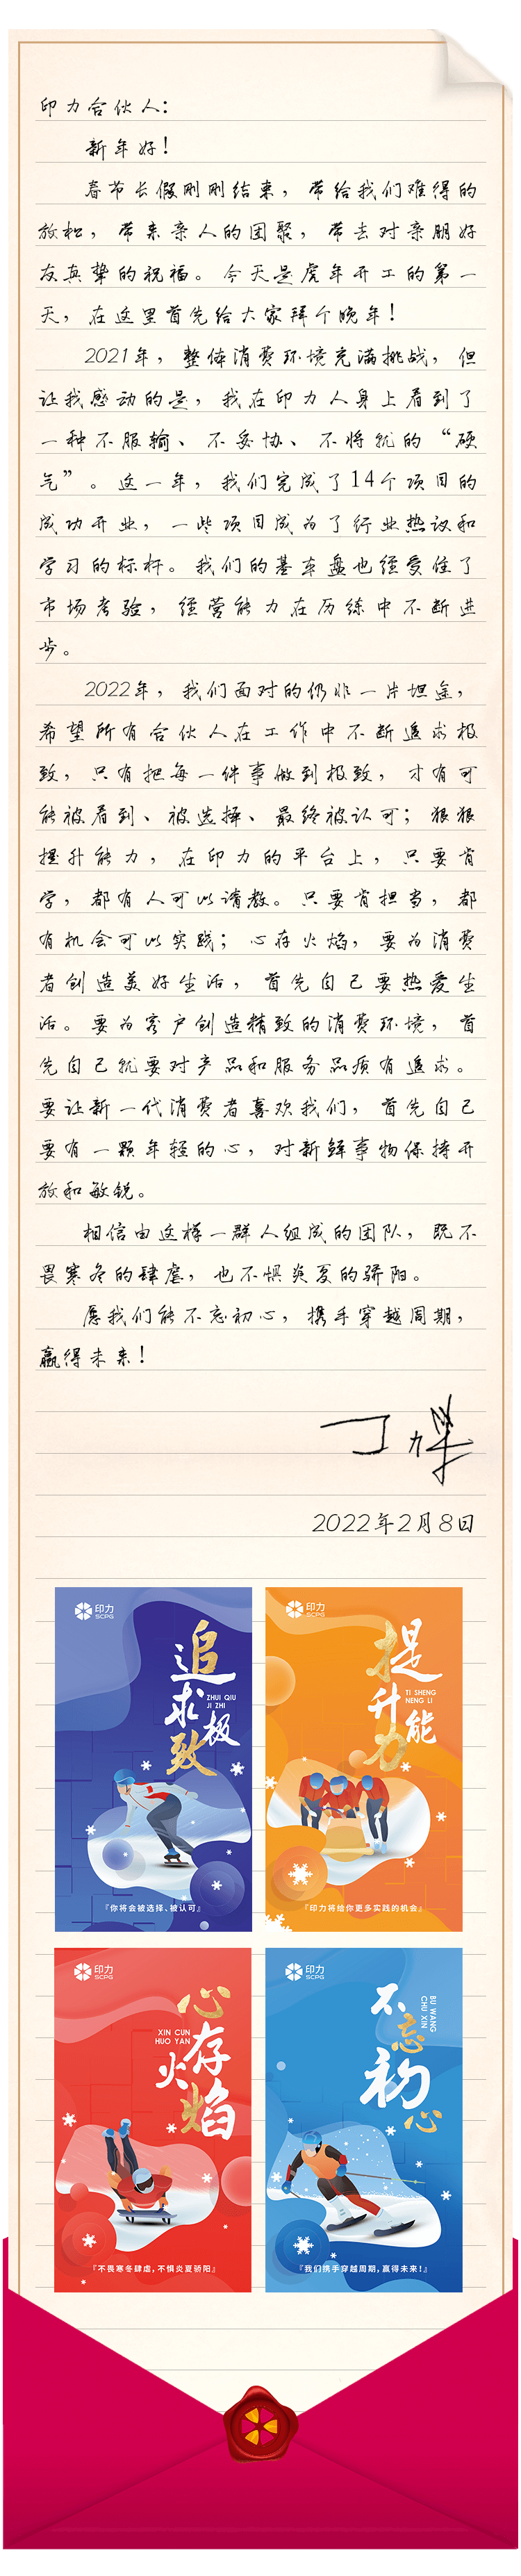 印力合伙人：
新年好！
春节长假刚刚结束，带给我们难得的
放松，带来亲人的团聚，带去对亲朋好
友真挚的祝福。今天是虎年开工的第一
天，在这里首先给大家拜个晚年！
2021年，整体消费环境充满挑战，但
让我感动的是，我在印力人身上看到了
一种不服输、不妥协、不将就的“硬
气”。这一年，我们完成了14个项目的
成功开业，一些项目成为了行业热议和
学习的标杆。我们的基本盘也经受住了
市场考验，经营能力在历练中不断进
步。
2022年，我们面对的仍非一片坦途，
希望所有合伙人在工作中不断追求极
致，只有把每一件事做到极致，才有可
能被看到、被选择、最终被认可；狠狠
提升能力，在印力的平台上，只要肯
学，都有人可以请教。只要肯担当，都
有机会可以实践；心存火焰，要为消费
者创造美好生活，首先自己要热爱生
活。要为客户创造精致的消费环境，首
先自己就要对产品和服务品质有追求。
要让新一代消费者喜欢我们，首先自己
要有一颗年轻的心，对新鲜事物保持开
放和敏锐。
相信由这样一群人组成的团队，既不
畏寒冬的肆虐，也不惧炎夏的骄阳。
愿我们能不忘初心，携手穿越周期，
赢得未来！
丁力业
2022年2月8日
印力
SCPG
追求极致
ZHUI QIU
JI ZHI
『你将会被选择、被认可』
印力
SCPG
提升能力
TI SHENG
NENG LI
『印力将给你更多实践的机会』
印力
SCPG
心存火焰
XIN CUN
HUO YAN
『不畏寒冬肆虐，不惧炎夏骄阳』
印力
SCPG
不忘初心
BU WANG
CHU XIN
『我们携手穿越周期，赢得未来！』